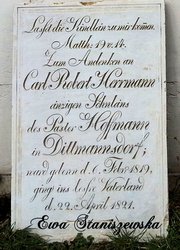 Lasset die Kindlein zu mir komen.
Matth: 19 v. 14.
Zum Andenken an
Carl Robert Herrmann
einzigen Söhnleins
des Pastor Hoffmann
in Dittmannsdorf;
ward geborn d. 6. Febr. 1819,
ging ins Vaterland
d. 22. April 1821.
Ewa Staniszewska